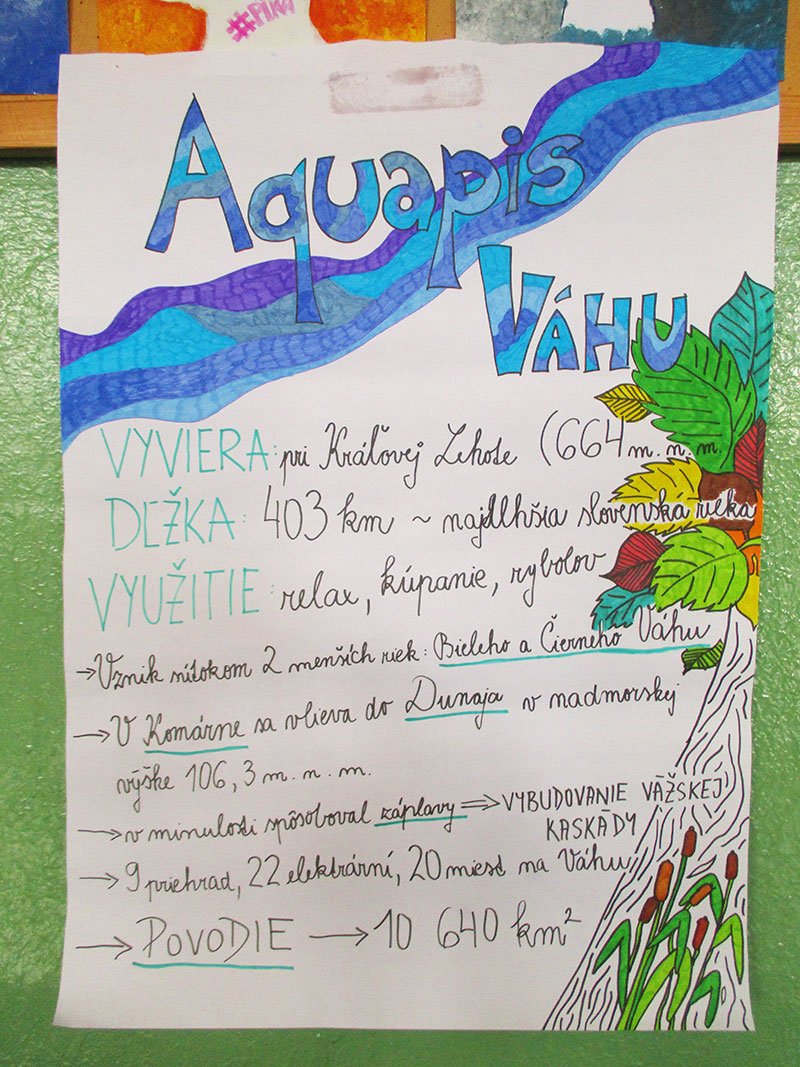 #PIKA
Aquapis
VÁHU
VYVIERA: pri Kráľovej Lehote (664 m. n. m.
DĹŽKA: 403 km ~ najdlhšia slovenská rieka
VYUŽITIE: relax, kúpanie, rybolov
→ Vznik sútokom 2 menších riek: Bieleho a Čierneho Váhu
→ V Komárne sa vlieva do Dunaja v nadmorskej
výške 106,3 m. n. m.
→ v minulosti spôsoboval záplavy ⇒ VYBUDOVANIE VÁŽSKEJ
KASKÁDY
→ 9 priehrad, 22 elektrární, 20 miest na Váhu
→ POVODIE → 10 640 km²